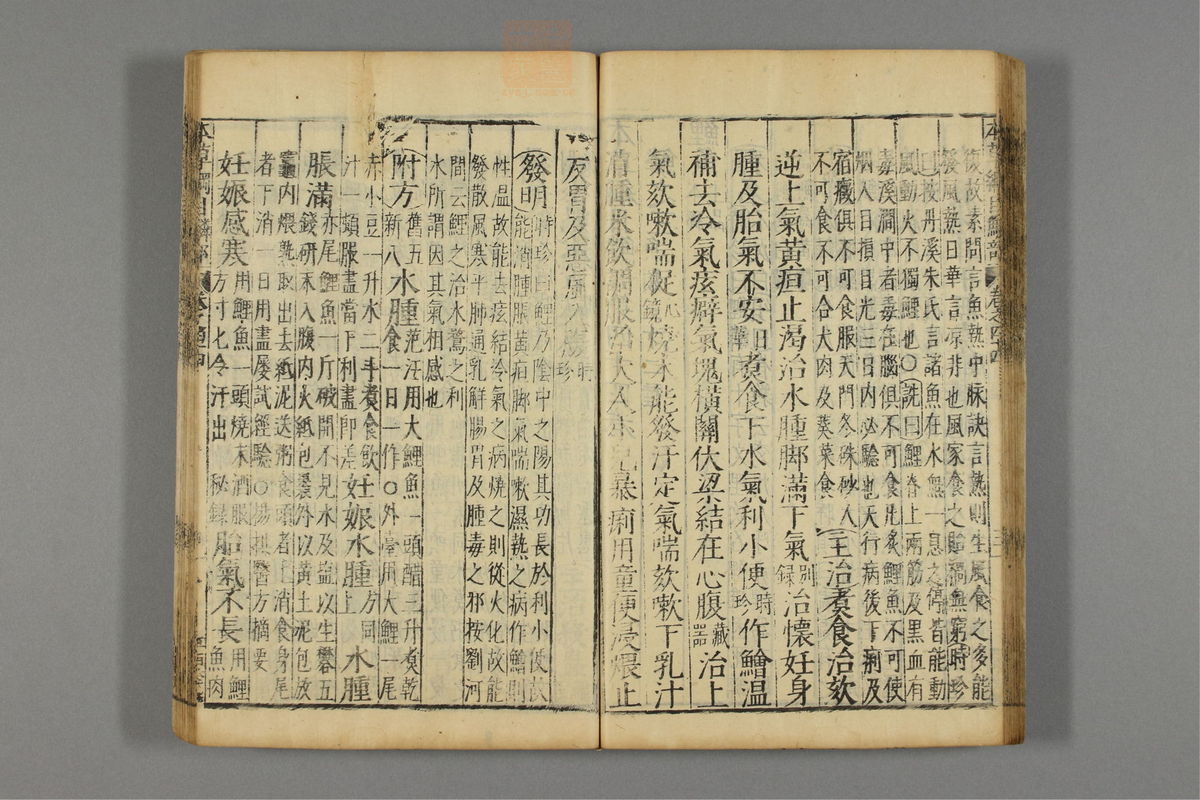 後故素問言魚熱中脉訣言熱則生風食之多能
發風熱日華言凉非也風家食之貽禍無窮時珍
曰按丹溪朱氏言諸魚在水無一息之停皆能動
風動火不獨鯉也○詵曰鯉脊上兩筋及黑血有
毒溪澗中者毒在腦俱不可食凡炙鯉魚不可使
烟入目損目光三日内必驗也天行病後下痢及
宿癥俱不可食服天門冬硃砂人
不可食不可合犬肉及葵菜食
主治煮食治欬
逆上氣黃疸止渴治水腫脚滿下氣别録治懷妊身
腫及胎氣不安日華煮食下水氣利小便時珍作鱠温
補去冷氣痃癖氣塊橫關伏梁結在心腹藏器治上
氣欬嗽喘促心鏡燒末能發汗定氣喘欬嗽下乳汁
消腫米飲調服治大人小兒暴痢用童便浸煨止
反胃及惡風入腹時珍
發明時珍曰鯉乃陰中之陽其功長於利小便故
能消腫脹黃疸脚氣喘嗽濕熱之病作鱠則
性温故能去痃結冷氣之病燒之則從火化故能
發散風寒平肺通乳解腸胃及腫毒之邪按劉河
間云鯉之治水鶩之利
水所謂因其氣相感也
附方舊五新八水腫范汪用大鯉魚一頭醋三升煮乾
食一日一作○外臺用大鯉一尾
赤小豆一升水二斗煮食飲
汁一頓服盡當下利盡即差妊娠水腫方同上水腫
脹滿赤尾鯉魚一斤破開不見水及鹽以生礬五
錢研末入腹内火紙包裹外以黃土泥包放
竈内煨熟取出去紙泥送粥食頭者上消食身尾
者下消一日用盡屢試經驗○楊拱醫方摘要
妊娠感寒用鯉魚一頭燒末酒服
方寸匕令汗出 秘録胎氣不長用鯉
魚肉